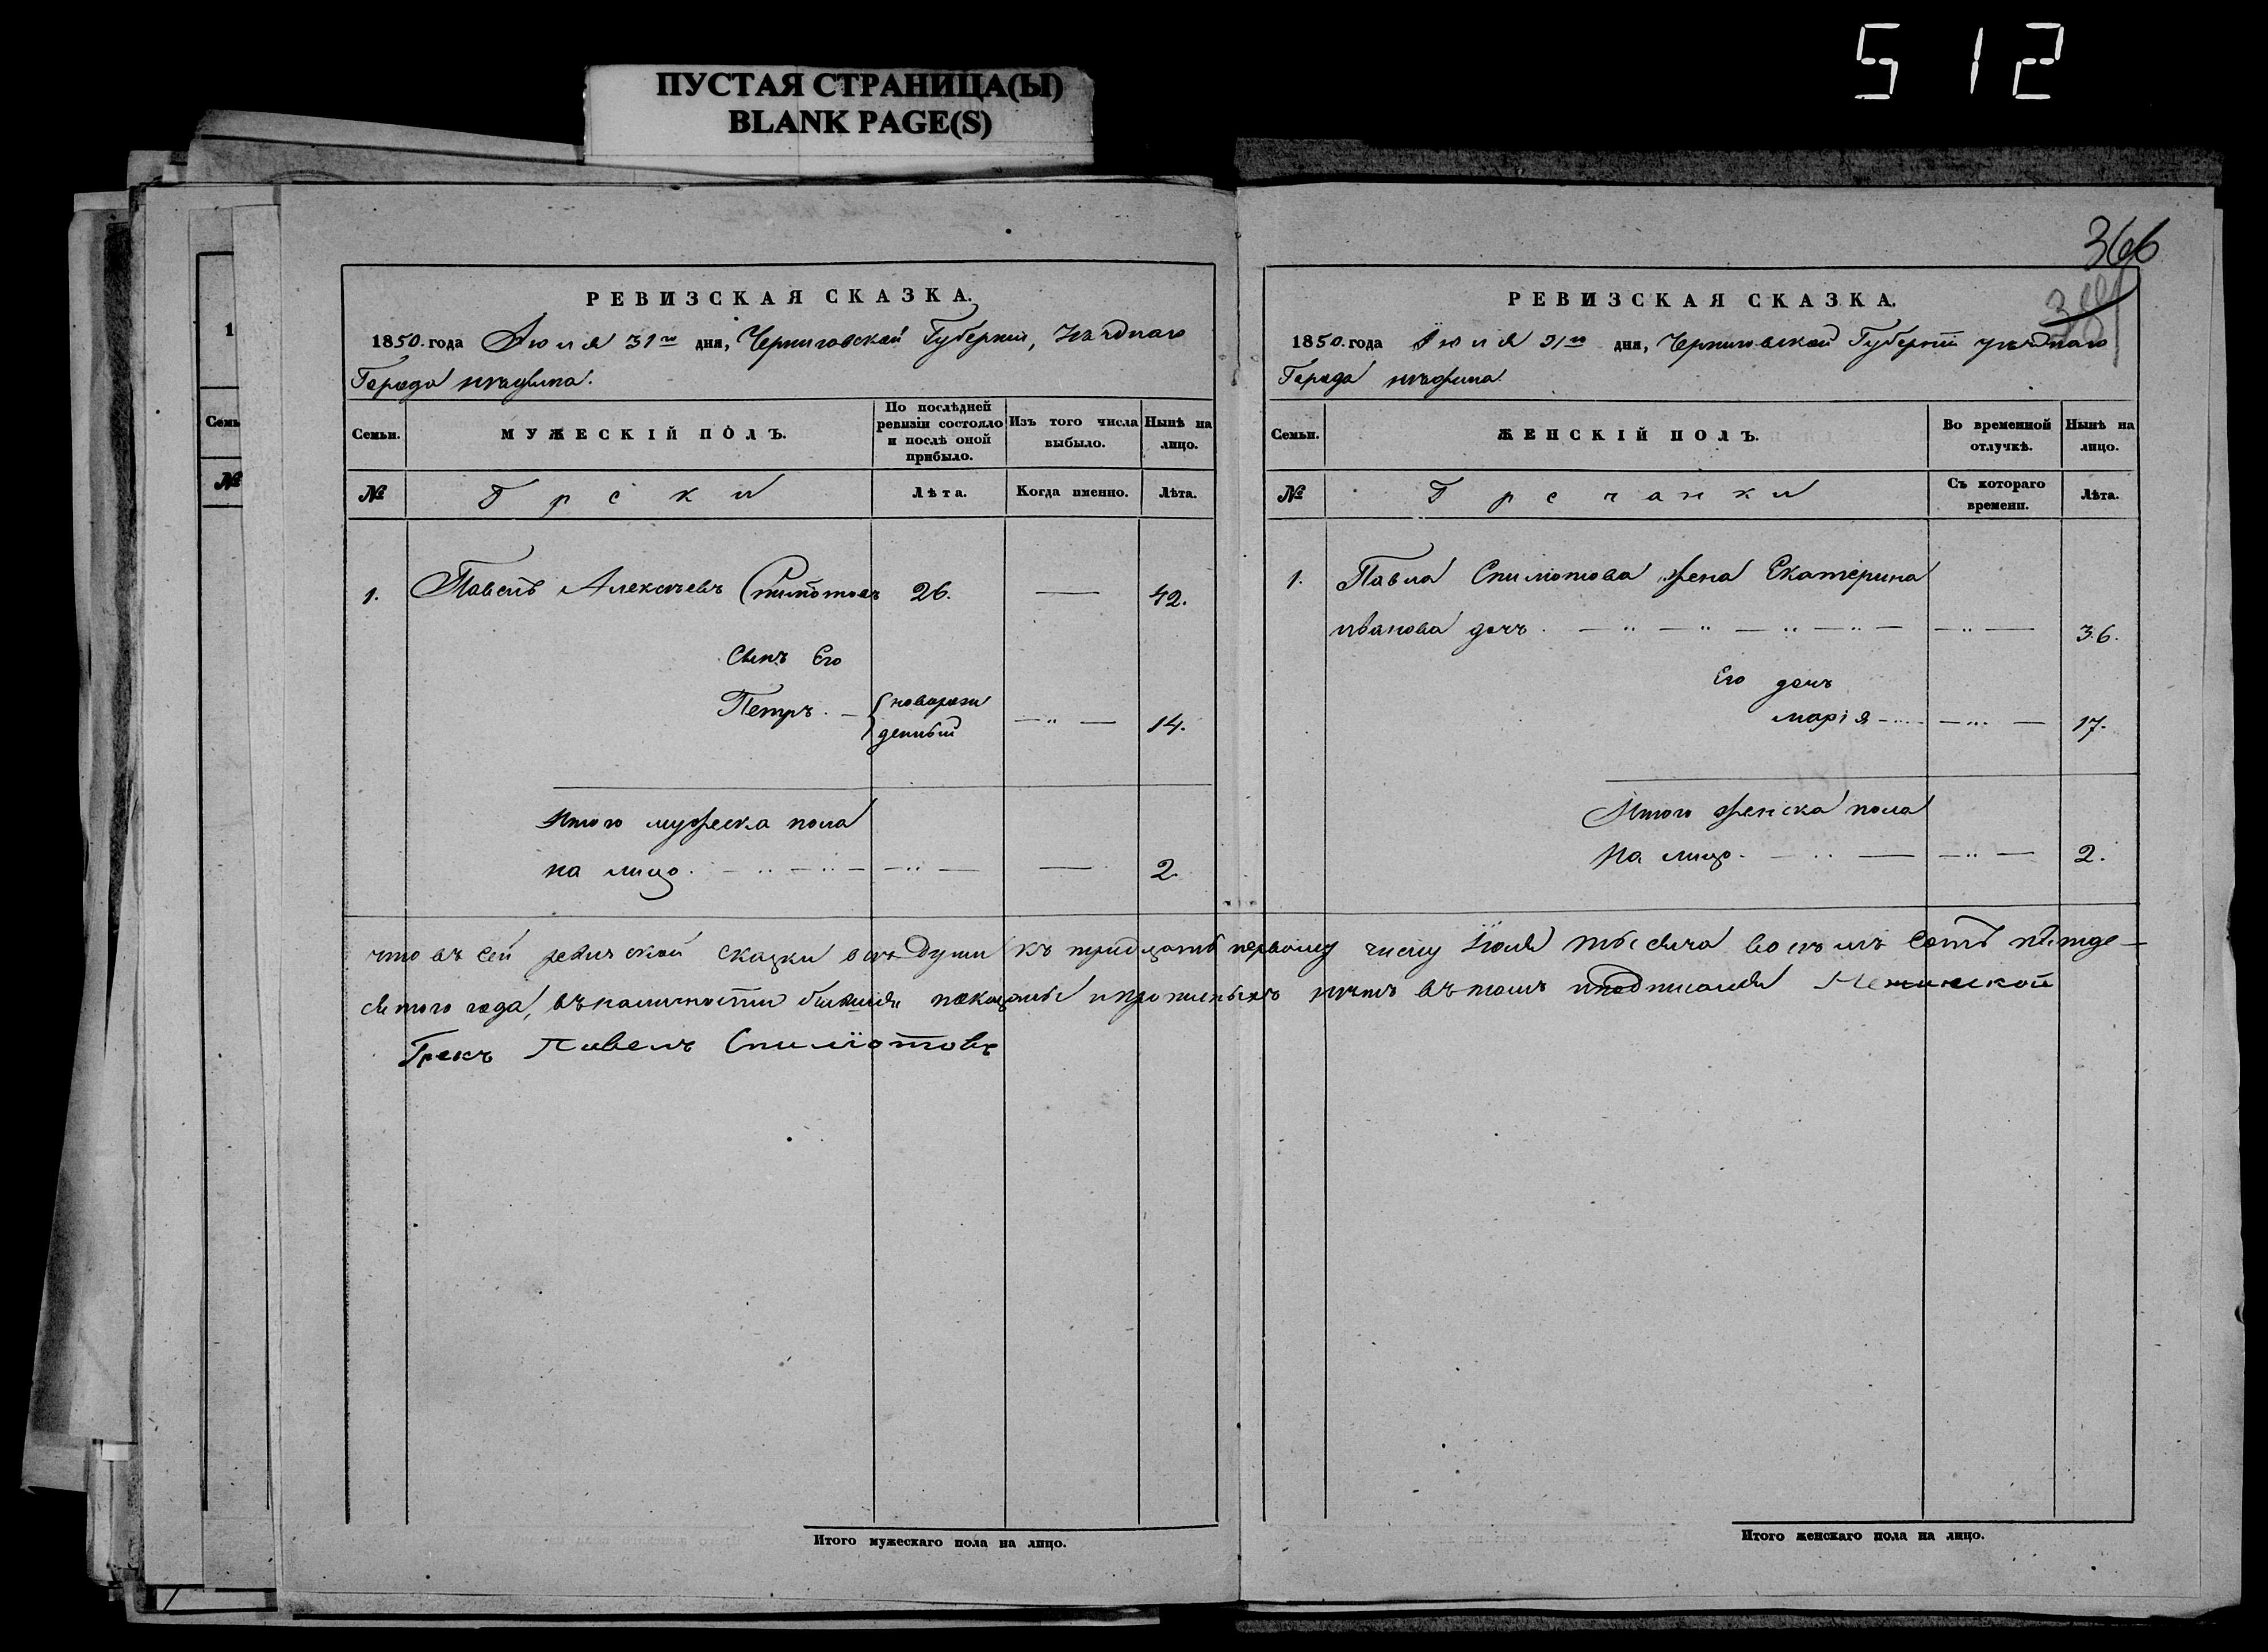 512
ПУСТАЯ СТРАНИЦА(Ы)
BLANK PAGE(S)
1
Семь
№
РЕВИЗСКАЯ СКАЗКА.
1850. года Июля 31го дня, Черниговской Губернии, уѣзднаго
Города нѣжина.
Семьи.
МУЖЕСКІЙ ПОЛЪ.
По послѣдней ревизіи состояло и послѣ оной прибыло.
Изъ того числа выбыло.
Нынѣ на лицо.
№
Греки
Лѣта.
Когда именно.
Лѣта.
1. Павелъ Алексѣевъ Спилiотовъ 26. — 42.
Сынъ Его
Петръ. — новорожденный — 14.
Итого мужеска пола
на лицо. — 2.
366
381
РЕВИЗСКАЯ СКАЗКА.
1850. года Июля 31го дня, Черниговской Губерніи уѣзднаго
Города нѣжина
Семьи.
ЖЕНСКІЙ ПОЛЪ.
Во временной отлучкѣ.
Нынѣ на лицо.
№
Гречанки
Съ котораго времени.
Лѣта.
1. Павла Спилiотова жена Екатерина
иванова дочь. — 36.
Его дочь
марія — 17.
Итого женска пола
на лицо. — 2.
что въ сей ревиской скаски всѣ Души къ тридцать первому числу Июля тысяча восемъ сотъ пятде-
сятого года, въ наличности бывшія показаны и прописныхъ нѣтъ въ томъ и подписался Неженской
Грекъ Павелъ Спилїотовъ
Итого мужескаго пола на лицо.
Итого женскаго пола на лицо.